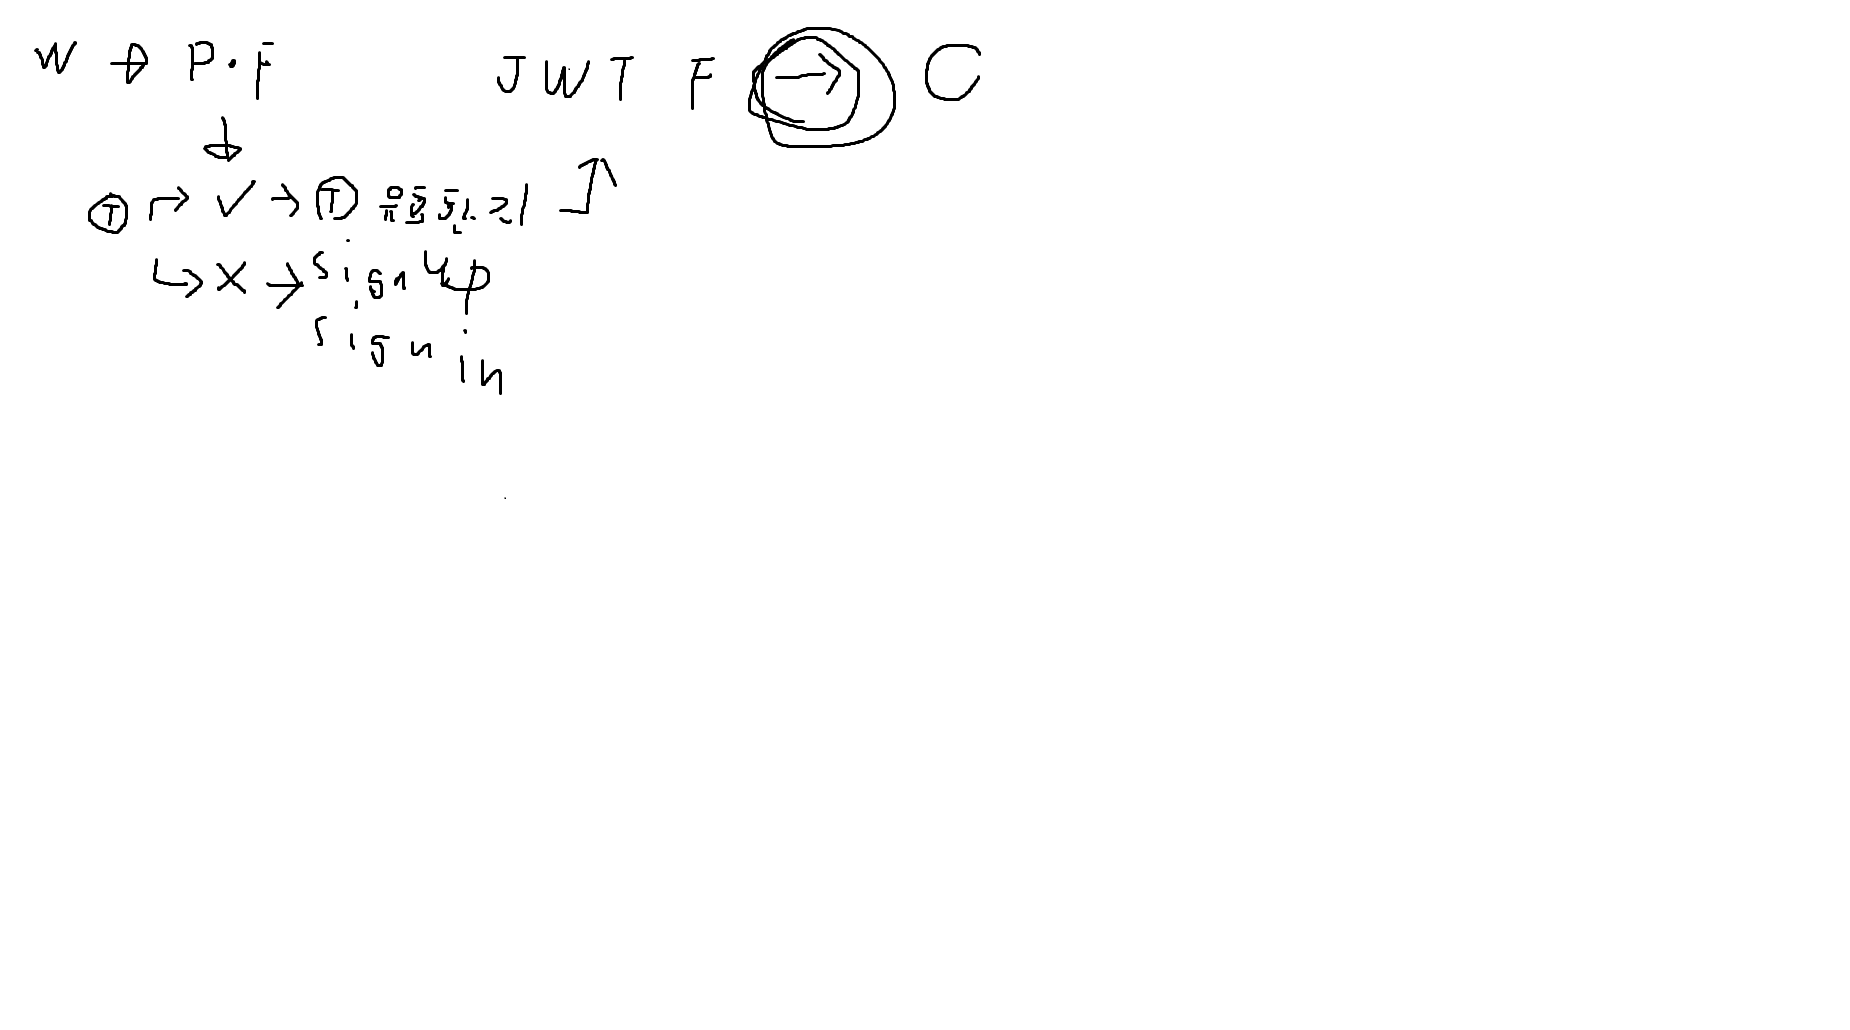 W → P.F
JWT F → C
Ⓣ → ✓ → Ⓣ 유효한지
↳ X → sign up
sign in